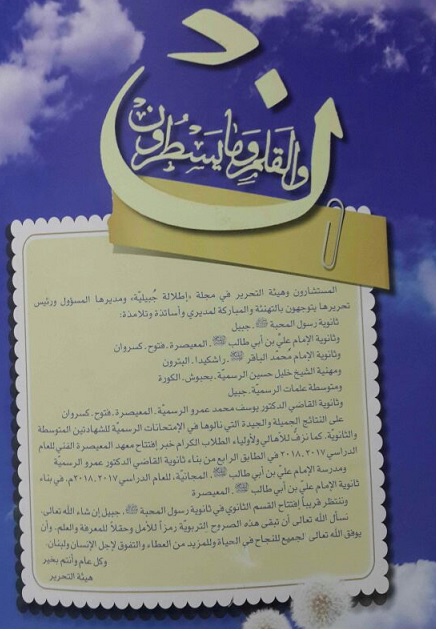 ن
والقلم وما يسطرون
المستشارون وهيئة التحرير في مجلة «إطلالة جُبيليّة» ومديرها المسؤول ورئيس
تحريرها يتوجهون بالتهنئة والمباركة لمديري وأساتذة وتلامذة:
ثانوية رسول المحبة ﷺ. جبيل
وثانوية الإمام عليّ بن أبي طالب. المعيصرة. فتوح. كسروان
وثانوية الإمام محمّد الباقر. راشكيدا. البترون
ومهنية الشيخ خليل حسين الرسميّة. بحبوش. الكورة
ومتوسطة علمات الرسميّة. جبيل
وثانوية القاضي الدكتور يوسف محمد عمرو الرسميّة. المعيصرة. فتوح. كسروان
على النتائج الجميلة والجيدة التي نالوها في الإمتحانات الرسمية للشهادتين المتوسطة
والثانويّة. كما نزفُّ للأهالي ولأولياء الطلاب الكرام خبر إفتتاح معهد المعيصرة الفني للعام
الدراسي ٢٠١٧ـ٢٠١٨ في الطابق الرابع من بناء ثانوية القاضي الدكتور عمرو الرسميّة
ومدرسة الإمام عليّ بن أبي طالب. المجانيّة، للعام الدراسي ٢٠١٧ـ٢٠١٨م. في بناء
ثانوية الإمام عليّ بن أبي طالب. المعيصرة
وننتظر قريباً إفتتاح القسم الثانوي في ثانوية رسول المحبة ﷺ. جبيل إن شاء الله تعالى.
نسأل الله تعالى أن تبقى هذه الصروح التربويّة رمزاً للأمل وحقلاً للمعرفة والعلم. وأن
يوفق الله تعالى لجميع للنجاح في الحياة وللمزيد من العطاء والتفوق لإجل الإنسان ولبنان.
وكل عام وأنتم بخير
هيئة التحرير